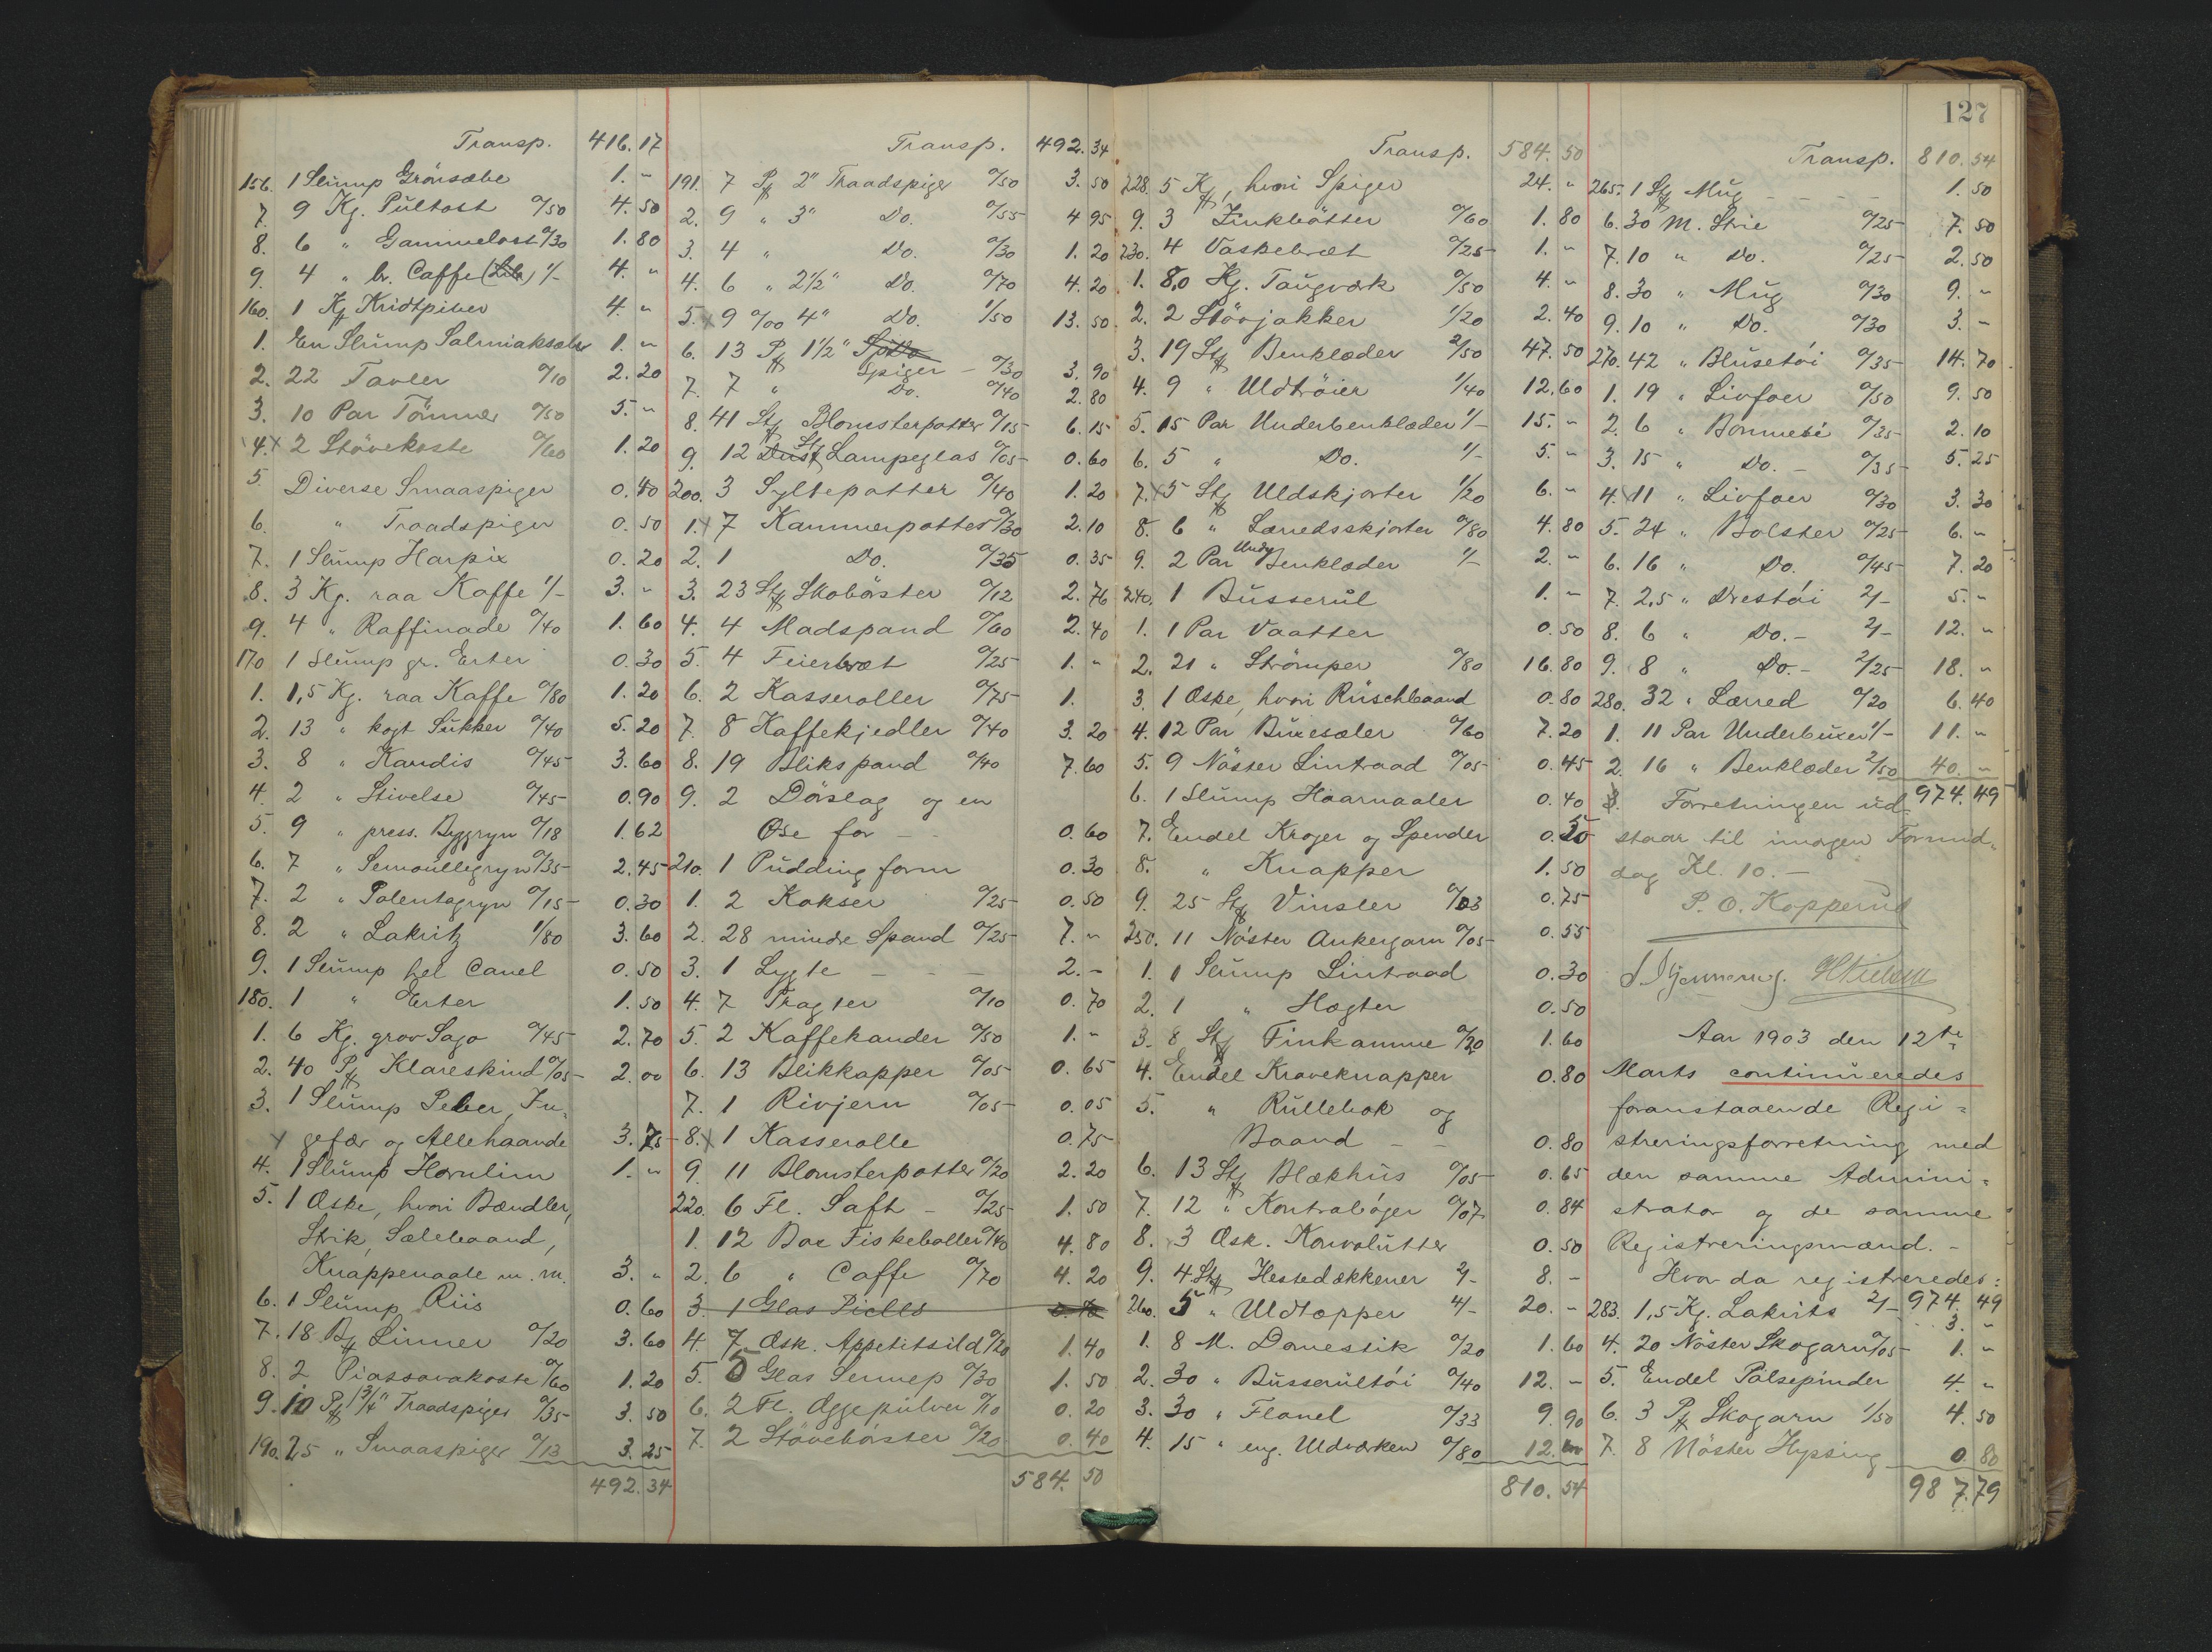 127
Transp. 416.17
156. 1 Slump Grönsæbe 1. "
7. 9 Kg. Pultost 0/50 4.50
8. 6 " Gammelost 0/30 1.80
9. 4 " br. Caffe 1/- 4. "
160. 1 Kridtpiber 4. "
1. En Slump Salmiaksæbe 1. "
2. 22 Tavler 0/10 2.20
3. 10 Par Tömmer 0/50 5. "
4. x 2 Stövekoste 0/60 1.20
5. Diverse Smaaspiger 0.40
6. " Traadspiger 0.50
7. 1 Slump Harpix 0.20
8. 3 Kg. raa Kaffe 1/- 3. "
9. 4 " Raffinade 0/40 1.60
170 1 Slump gr. Erter 0.30
1. 1,5 Kg. raa Kaffe 0/80 1.20
2. 13 " kogt Sukker 0/40 5.20
3. 8 " Kandis 0/45 3.60
4. 2 " Stivelse 0/45 0.90
5. 9 " press. Byggryn 0/18 1.62
6. 7 " Semoullegryn 0/35 2.45
7. 2 " Polentagryn 0/15 0.30
8. 2 " Lakritz 1/80 3.60
9. 1 Slump hel Canel 0.50
180. 1 " Erter 1.50
1. 6 Kg. grov Sago 0/45 2.70
2. 40 Pk Klareskind 0/05 2.00
3. 1 Slump Peber, In-
x gefær og Allehaande 3.75
4. 1 Slump Hornlim 1. "
5. 1 Æske, hvori Bændler,
Strik, Sælebaand,
Knappenaale m. m. 3. "
6. 1 Slump Riis 0.60
7. 18 Linner 0/20 3.60
8. 2 Piassavakoste 0/60 1.20
9. 10 Pk 1 3/4" Traadspiger 0/35 3.50
190. 25 " Smaaspiger 0/13 3.25
492.34
Transp. 492.34
191. 7 Pk 2" Traadspiger 0/50 3.50
2. 9 " 3" Do. 0/55 4.95
3. 4 " Do. 0/30 1.20
4. 6 " 2 1/2" Do. 0/70 4.20
5. x 9 0/00 4" Do. 1/50 13.50
6. 13 Pk 1 1/2"
Spiger - 0/30 3.90
7. 7 " Do. 0/40 2.80
8. 41 Stk Blomsterpotter 0/15 6.15
9. 12 Stk Lampeglas 0/05 0.60
200. 3 Syltepotter 0/40 1.20
1. x 7 Kammerpotter 0/30 2.10
2. 1 Do. 0/35 0.35
3. 23 Stk Skobörster 0/12 2.76
4. 4 Madspand 0/60 2.40
5. 4 Feierbræt 0/25 1. "
6. 2 Kasseroller 0/75 1.
7. 8 Kaffekjedler 0/40 3.20
8. 19 Blikspand 0/40 7.60
9. 2 Dörslag og en
Øse for - - 0.60
210. 1 Pudding form 0.30
1. 2 Kokser 0/25 0.50
2. 28 mindre Spand 0/25 7. "
3. 1 Lygte - - - 2. -
4. 7 Tragter 0/10 0.70
5. 2 Kaffekander 0/50 1. "
6. 13 Blikkopper 0/05 0.65
7. 1 Rivjern 0/05 0.05
8. x 1 Kasserolle 0.75
9. 11 Blomsterpotter 0/20 2.20
220. 6 Fl. Saft - 0/25 1.50
1. 12 Box Fiskeboller 0/40 4.80
2. 6 " Caffe 0/70 4.20
3. 1 Glas Picles
4. 7 Æsk. Appetitsild 0/20 1.40
5. 5 Glas Sennep 0/30 1.50
6. 2 Fl. Æggepulver 0/10 0.20
7. 2 Stövebörster 0/20 0.40
584.50
Transp. 584.50
228. 5 Kg, hvori Spiger 24. "
9. 3 Stk Zinkbötter 0/60 1.80
230. 4 Vaskebræt 0/25 1. "
1. 8,0 Kg. Taugværk 0/50 4. "
2. 2 Stövjakker 1/20 2.40
3. 19 Stk Benklæder 2/50 47.50
4. 9 " Uldtröier 1/40 12.60
5. 15 Par Underbenklæder 1/- 15. "
6. 5 " Do. 1/- 5. "
7. x 5 Stk Uldskjorter 1/20 6. "
8. 6 " Lærredsskjorter 0/80 4.80
9. 2 Par Under Benklæder 1/- 2. "
240. 1 Busserul 1. "
1. 1 Par Vaatter 0.50
2. 21 " Strömper 0/80 16.80
3. 1 Æske, hvori Rüschbaand 0.80
4. 12 Par Buxesæler 0/60 7.20
5. 9 Nöster Lintraad 0/05 0.45
6. 1 Slump Haarnaaler 0.40
7. Endel Kroger og Spender 0.50
8. " Knapper 1.50
9. 25 Stk Vinsler 0/03 0.75
250. 11 Nöster Ankergarn 0/05 0.55
1. 1 Slump Lintraad 0.30
2. 1 " Hægter 0.50
3. 8 Stk Finkamme 0/20 1.60
4. Endel Kraveknapper 0.80
5. " Rullebok og
Baand - - 0.80
6. 13 Stk Blækhus 0/05 0.65
7. 12 " Kontrabøger 0/07 0.84
8. 3 Æsk. Konvolutter 0.50
9. 4 Stk Hestedækkener 2/- 8. -
260. 5 " Uldtæpper 4/- 20. -
1. 8 M. Domestik 0/20 1.60
2. 30 " Busserultöi 0/40 12. -
3. 30 " Flanel 0/33 9.90
4. 15 " eng. Uldværken 0/80 12.
810.54
Transp. 810.54
265. 1 Stk Mug - - - - 1.50
6. 30 M. Strie 0/25 7.50
7. 10 " Do. 0/25 2.50
8. 30 " Mug 0/30 9. "
9. 10 " Do. 0/30 3. -
270. 42 " Blusetöi 0/35 14.70
1. 19 " Livfoer 0/50 9.50
2. 6 " Bommesi 0/35 2.10
3. 15 " Do. - 0/35 5.25
4. x 11 " Livfoer 0/30 3.30
5. 24 " Bolster 0/25 6. "
6. 16 " Do. 0/45 7.20
7. 2,5 " Drestöi 2/- 5. "
8. 6 " Do. - 2/- 12. "
9. 8 " Do. - 2/25 18. "
280. 32 " Lærred 0/20 6.40
1. 11 Par Underbuxer 1/- 11. "
2. 16 " Benklæder 2/50 40. "
974.49
Forretningen ud-
staar til imorgen Formid-
dag Kl. 10. -
P. O. Kopperud
Aar 1903 den 12te
Marts continueredes
foranstaaende Regi-
streringsforretning med
den samme Admini-
strator og de samme
Registreringsmænd. -
Hvor da registreredes:
974.49
283. 1,5 Kg. Lakrits 2/- 3. "
4. 20 Nöster Skogarn 0/05 1. "
5. Endel Pölsepinder 4. "
6. 3 Pk Skogarn 1/50 4.50
7. 8 Nöster Hyssing 0.80
987.79